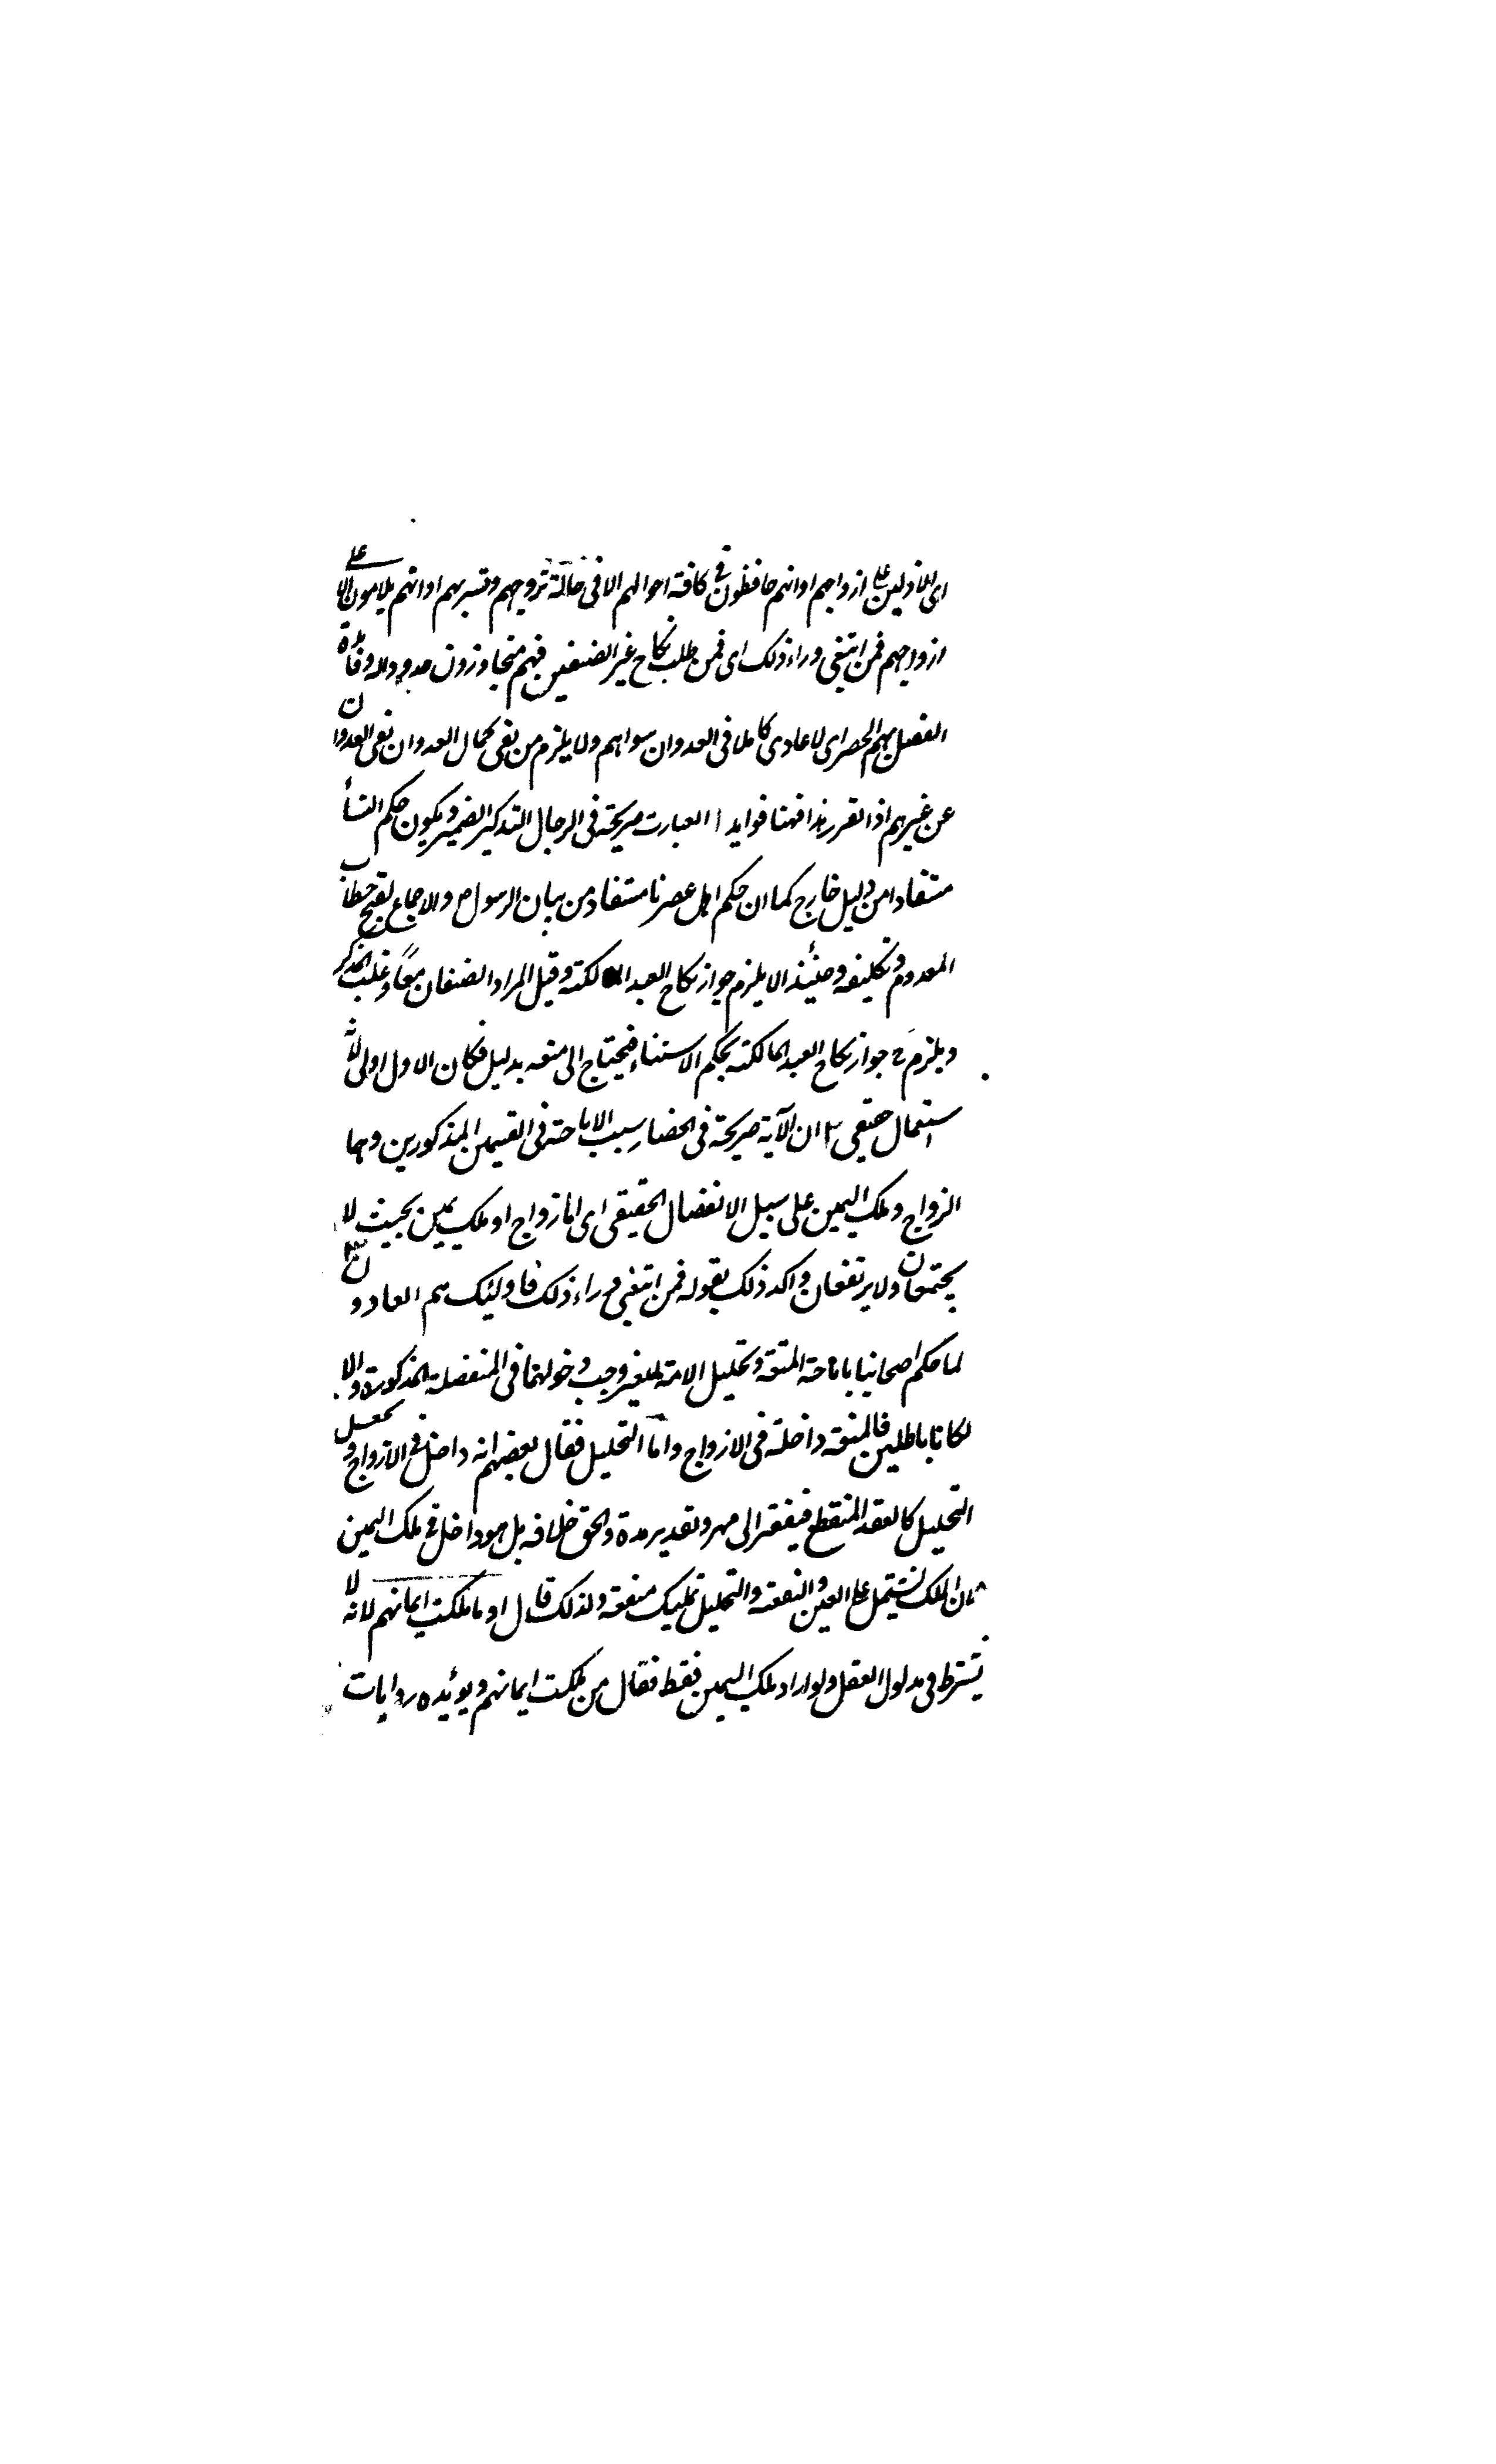 اى الا والين على ازواجهم او انهم حافظون فى كافة احوالهم الا فى حالة تزويجهم وتسريهم او انهم يلامون الا على
ازواجهم فمن ابتغى وراء ذلك اى فمن طلب نكاح غير الصنفين فهم متجاوزون حدود الله وفائدة
الفصل بهم الحصر اى لا عادى كاملا فى العدوان سواهم ولا يلزم من نفى كمال العدوان نفى العدوان
عن غيرهم اذا تقرر هذا فهنا فوايد ا العبارت صريحة فى الرجال لتذكير الضمير ويكون حكم النسأ
مستفادا من دليل خارج كما ان حكم اهل عصرنا مستفاد من بيان الرسول ص والاجماع لقبح خطاب
المعدوم وتكليفه وحينئذ لا يلزم جواز نكاح العبد لمالكته وقيل المراد الصنفان معًا وغلب المذكر
ويلزم ح جواز نكاح العبد لمالكته بحكم الاستثناء فيحتاج الى منعه بدليل فكان الاول اولى لانه
استعمال حقيقى ٢ ان الآية صريحة فى انحصار سبب الاباحة فى القسمين المذكورين وهما
الزواج وملك اليمين على سبيل الانفصال الحقيقى اى اما ازواج او ملك يمين بحيث لا
يجتمعان ولا يرتفعان واكد ذلك بقوله فمن ابتغى وراء ذلك فاولئك هم العادون ٣
لما حكم اصحابنا باباحة المتعة وتحليل الامة للغير وجب دخولهما فى المنفصلة المذكورة والا
لكانا باطلين فالمتعة داخلة فى الازواج واما التحليل فقال بعضهم انه داخل فى الازواج وجعل
التحليل كالعقد المنقطع فيفتقر الى مهر وتقدير مدة والحق خلافه بل هو داخل فى ملك اليمين
لان الملك يشتمل على العين والمنفعة والتحليل تمليك منفعة ولذلك قال او ما ملكت ايمانهم لانه لا
يشترط فى مدلول العقل ولو اراد ملك اليمين فقط فقال من ملكت ايمانهم ويؤيده روايات